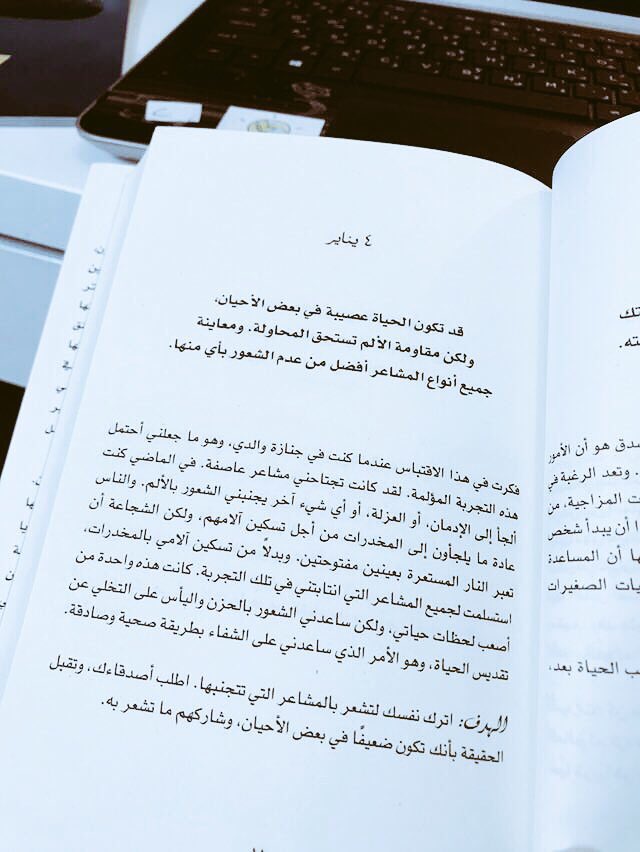 ٤ يناير
قد تكون الحياة عصيبة في بعض الأحيان،
ولكن مقاومة الألم تستحق المحاولة. ومعاينة
جميع أنواع المشاعر أفضل من عدم الشعور بأي منها.
فكرت في هذا الاقتباس عندما كنت في جنازة والدي، وهو ما جعلني أحتمل
هذه التجربة المؤلمة. لقد كانت تجتاحني مشاعر عاصفة. في الماضي كنت
ألجأ إلى الإدمان، أو العزلة، أو أي شيء آخر يجنبني الشعور بالألم. والناس
عادة ما يلجأون إلى المخدرات من أجل تسكين آلامهم، ولكن الشجاعة أن
تعبر النار المستعرة بعينين مفتوحتين. وبدلاً من تسكين آلامي بالمخدرات،
استسلمت لجميع المشاعر التي انتابتني في تلك التجربة. كانت هذه واحدة من
أصعب لحظات حياتي، ولكن ساعدني الشعور بالحزن واليأس على التخلي عن
تقديس الحياة، وهو الأمر الذي ساعدني على الشفاء بطريقة صحية وصادقة.
الهدف: اترك نفسك لتشعر بالمشاعر التي تتجنبها. اطلب أصدقاءك، وتقبل
الحقيقة بأنك تكون ضعيفًا في بعض الأحيان، وشاركهم ما تشعر به.
صدق هو أن الأمور
وتعد الرغبة في
ت المزاجية، من
ا أن يبدأ شخص
ها أن المساعدة
يات الصغيرات
ب الحياة بعد،